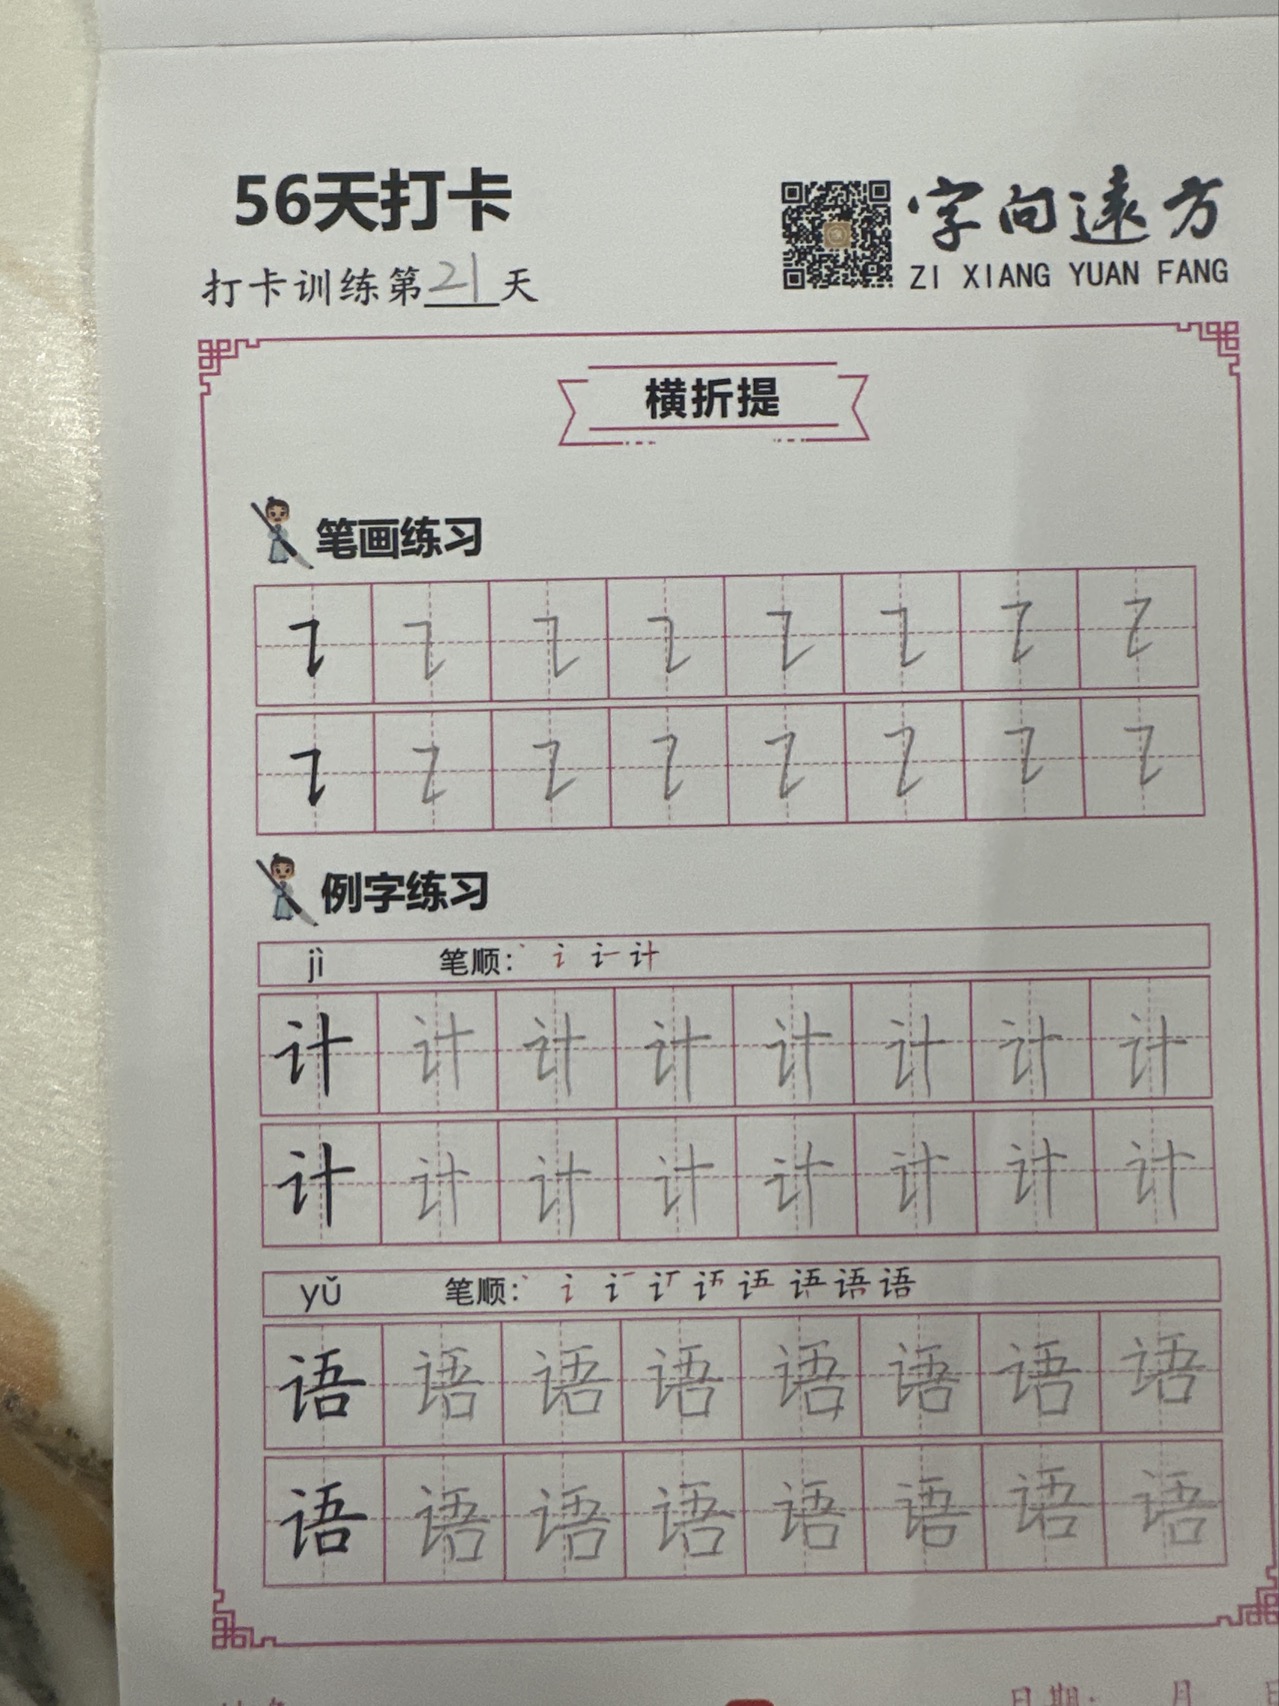 56天打卡
字向遠方
ZI XIANG YUAN FANG
打卡训练第21天
横折提
笔画练习
例字练习
jì 笔顺: 丶 讠 计
计 计 计 计 计 计 计 计
计 计 计 计 计 计 计 计
yǔ 笔顺: 丶 讠 语
语 语 语 语 语 语 语 语
语 语 语 语 语 语 语 语
日期: 月